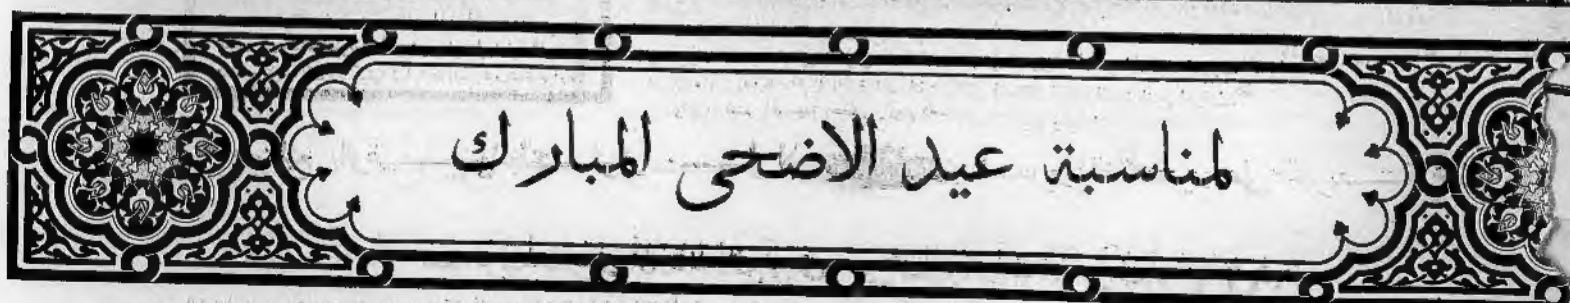 لمناسبة عيد الاضحى المبارك